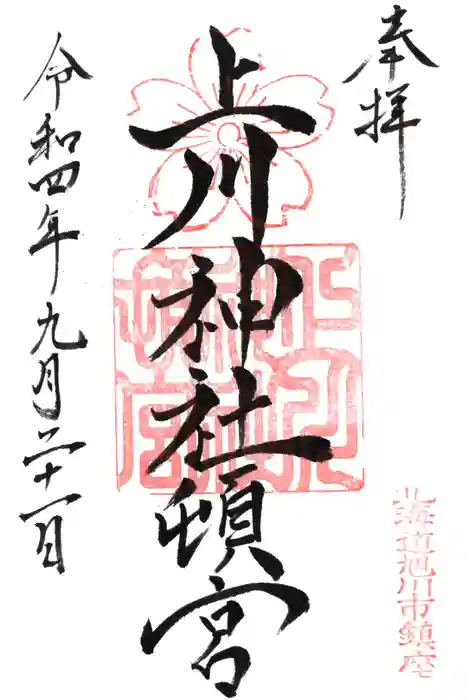 奉拝
上川神社頓宮
令和四年九月二十一日
北海道旭川市鎮座